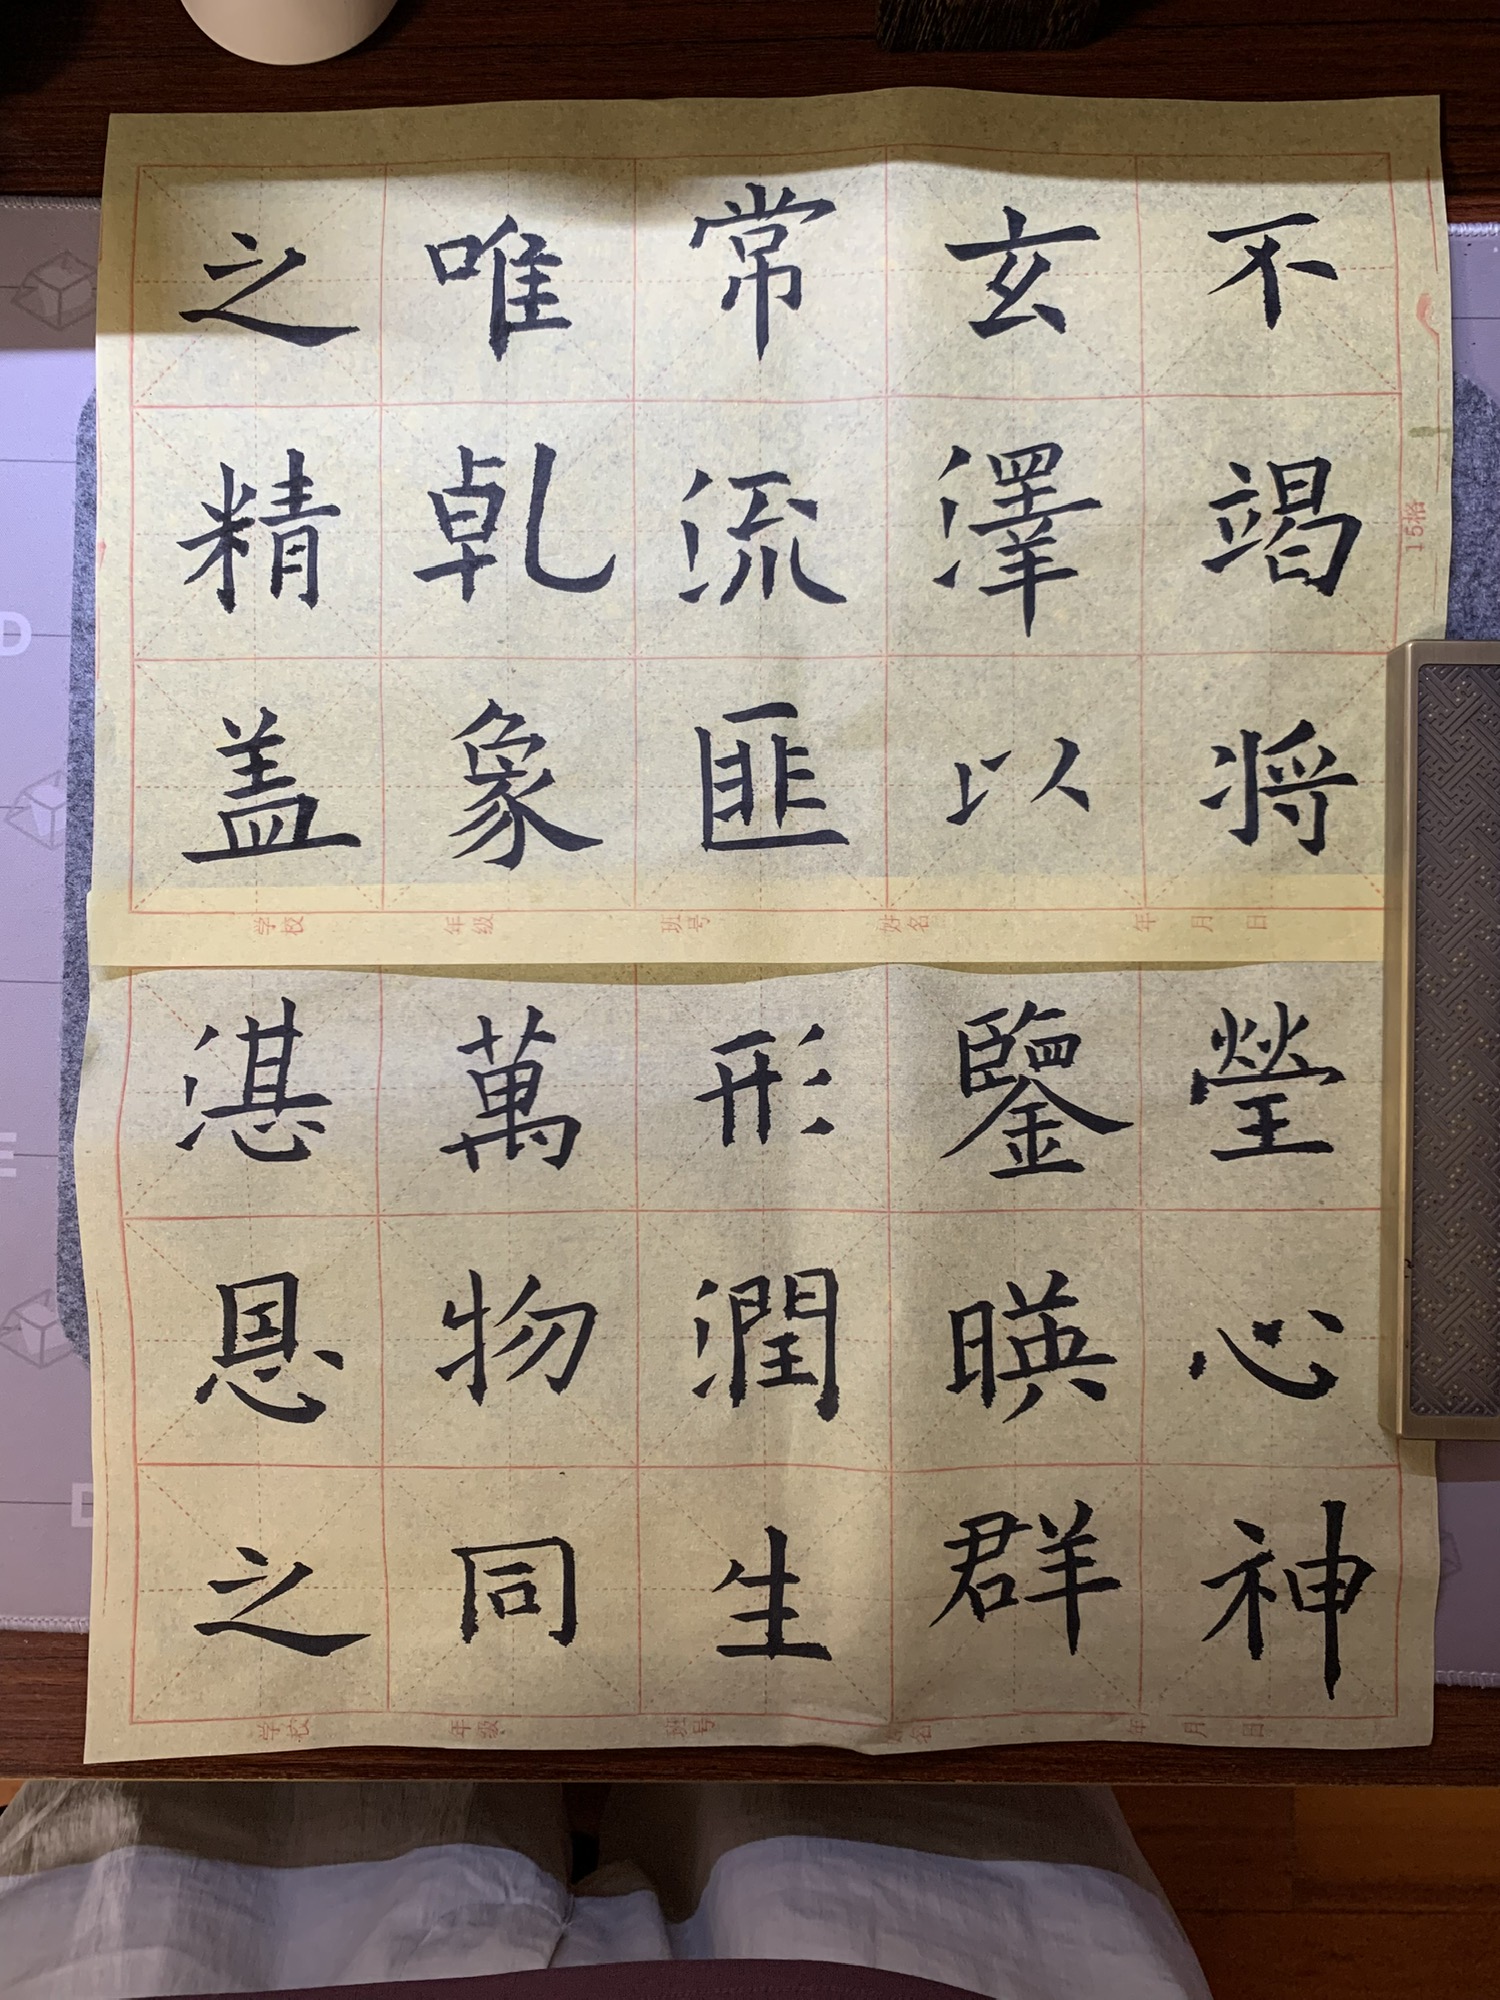 不竭将
玄澤以
常流匪
唯乹象
之精盖
15格
学校 年级 班号 姓名 年 月 日
瑩心神
鑒暎群
形潤生
萬物同
湛恩之
学校 年级 班号 姓名 年 月 日